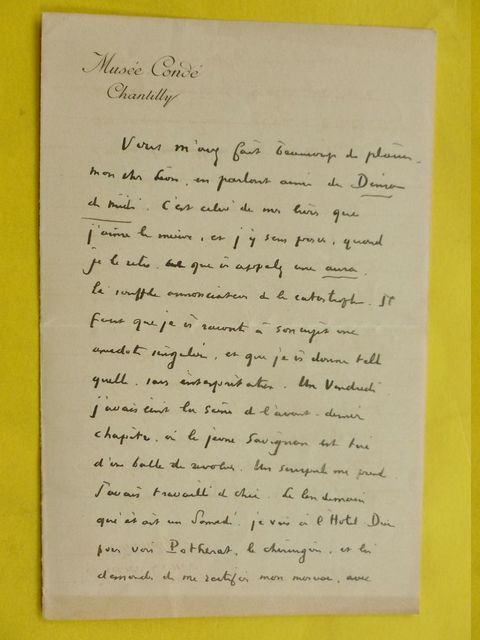 Musée Condé
Chantilly
Vous m'avez fait beaucoup de plaisir,
mon cher Léon, en parlant ainsi du Démon
de midi. C'est celui de mes livres que
j'aime le mieux, et j'y sens passer, quand
je le relis, ce que vs appelez une aura,
le souffle annonciateur de la catastrophe. Il
faut que je vs raconte à son sujet une
anecdote singulière, et que je vs donne telle
quelle, sans interprétation. Un Vendredi
j'avais écrit la scène de l'avant-dernier
chapitre, où le jeune Savignan est tué
d'une balle de revolver. Un scrupule me prend.
J'avais travaillé de chic. Le lendemain
qui était un Samedi, je vais à l'Hôtel Dieu
pour voir Potherat, le chirurgien, et lui
demander de me rectifier mon morceau, avec